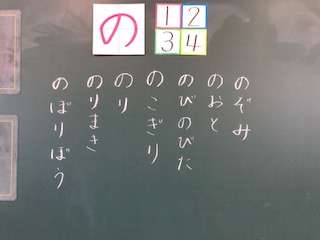 の
1 2
3 4
のぞみ
のおと
のびのびた
のこぎり
のり
のりまき
のぼりぼう